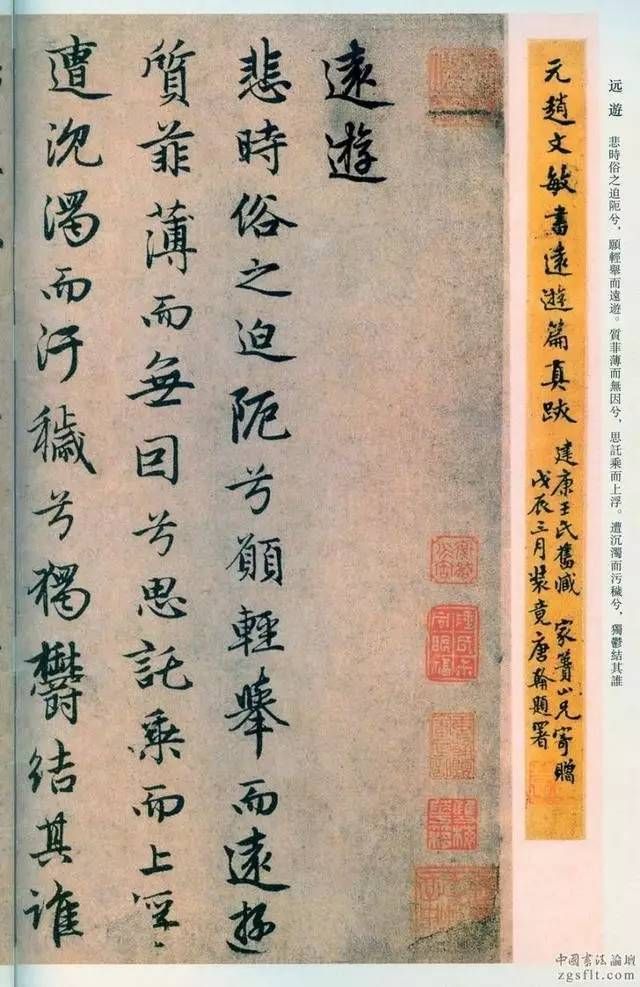 远 遊　悲時俗之迫阨兮，願輕舉而遠遊。質菲薄而無因兮，思託乘而上浮。遭沉濁而污穢兮，獨鬱結其誰
元趙文敏書遠遊篇真跡
建康王氏舊藏　家簣山兄寄贈
戊辰三月裝竟唐翰題署
遠遊
悲時俗之迫阨兮願輕舉而遠遊
質菲薄而無因兮思託乘而上浮
遭沉濁而汙穢兮獨鬱結其誰
中國書法論壇
zgsflt.com